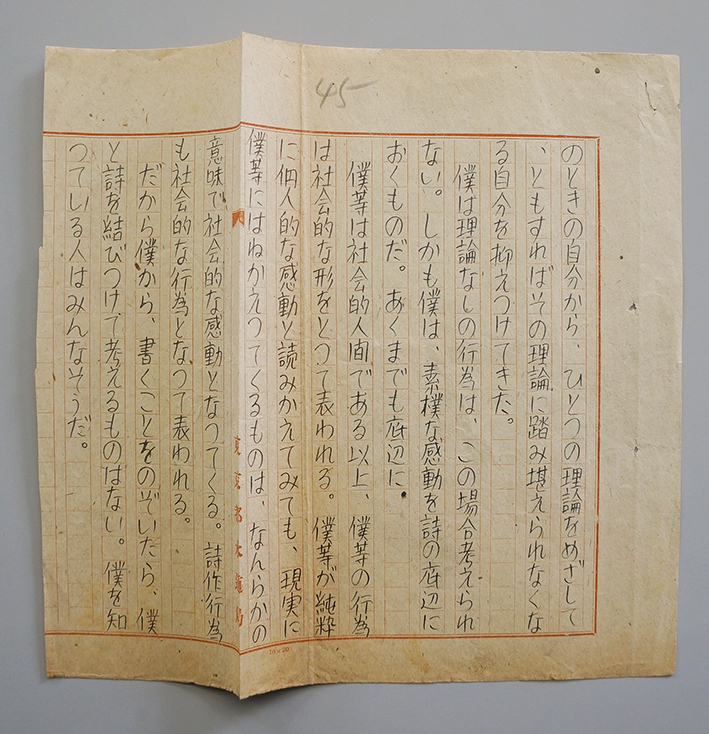 45
のときの自分から、ひとつの理論をめざして
、ともすればその理論に踏み堪えられなくな
る自分を抑えつけてきた。
僕は理論なしの行為は、この場合考えられ
ない。しかも僕は、素樸な感動を詩の底辺に
おくものだ。あくまでも底辺に。
僕等は社会的人間である以上、僕等の行為
は社会的な形をとつて表われる。僕等が純粋
に個人的な感動と読みかえてみても、現実に
僕等にはねかえつてくるものは、なんらかの
東京都水道局
意味で社会的な感動となつてくる。詩作行為
も社会的な行為となつて表われる。
だから僕から、書くことをのぞいたら、僕
と詩を結びつけて考えるものはない。僕を知
つている人はみんなそうだ。
10×20